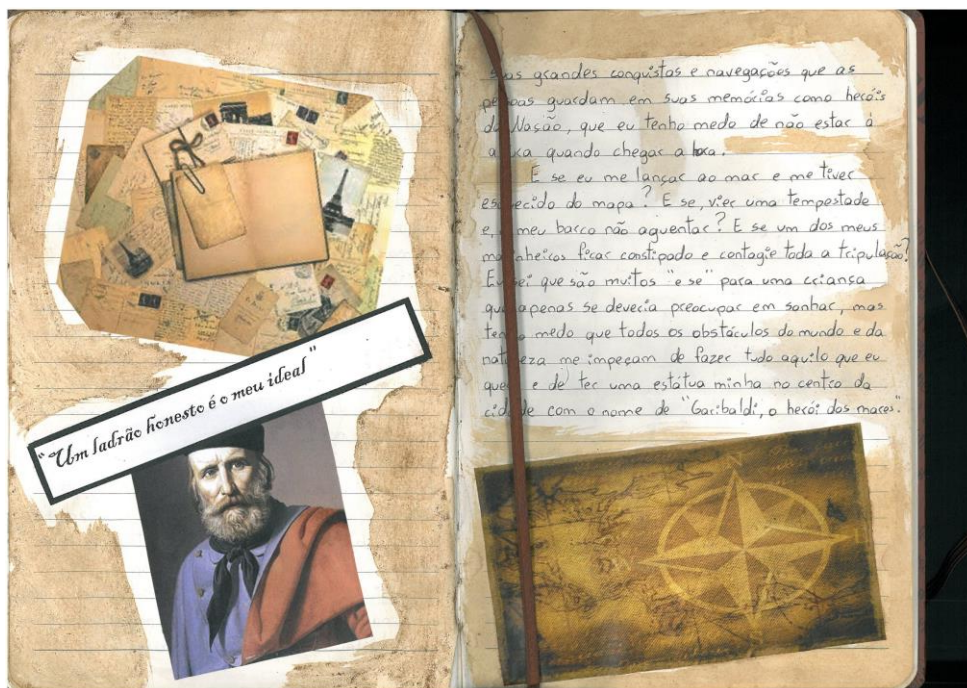 "Um ladrão honesto é o meu ideal"
suas grandes conquistas e navegações que as
pessoas guardam em suas memórias como heróis
da Nação, que eu tenho medo de não estar à
altura quando chegar a hora.
E se eu me lançar ao mar e me tiver
esquecido do mapa? E se, vier uma tempestade
e, o meu barco não aguentar? E se um dos meus
marinheiros ficar constipado e contagie toda a tripulação?
Eu sei que são muitos "e se" para uma criança
que apenas se deveria preocupar em sonhar, mas
tenho medo que todos os obstáculos do mundo e da
natureza me impeçam de fazer tudo aquilo que eu
quero e de ter uma estátua minha no centro da
cidade com o nome de "Garibaldi, o herói dos mares".